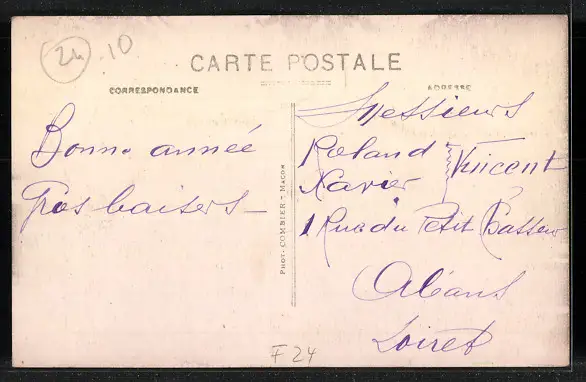 24 10
CARTE POSTALE
CORRESPONDANCE
ADRESSE
Bonne année
Gros baisers
PHOT. COMBIER - MACON
Messieurs
Roland
Xavier
Vincent
1 Rue du Petit
Orléans
Loiret
F 24